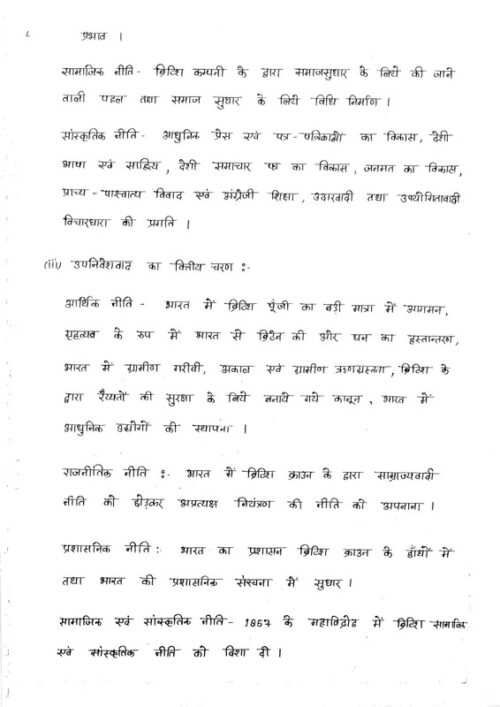 प्रभाव ।
सामाजिक नीति - ब्रिटिश कम्पनी के द्वारा समाजसुधार के लिये की जाने
वाली पहल तथा समाज सुधार के लिये विधि निर्माण ।
सांस्कृतिक नीति - आधुनिक प्रेस एवं पत्र-पत्रिकाओं का विकास, देशी
भाषा एवं साहित्य, देशी समाचार पत्र का विकास, जनमत का विकास,
प्राच्य - पाश्चात्य विवाद एवं अंग्रेजी शिक्षा, उदारवादी तथा उपयोगितावादी
विचारधारा की प्रगति ।
(iii) उपनिवेशवाद का वित्तीय चरण :-
आर्थिक नीति - भारत में ब्रिटिश पूंजी का बड़ी मात्रा में आगमन,
गृहव्यय के रुप में भारत से ब्रिटेन की ओर धन का हस्तान्तरण,
भारत में ग्रामीण गरीबी, अकाल एवं ग्रामीण ऋणग्रस्तता, ब्रिटिश के
द्वारा रैय्यतों की सुरक्षा के लिये बनाये गये कानून, भारत में
आधुनिक उद्योगों की स्थापना ।
राजनीतिक नीति :- भारत में ब्रिटिश क्राउन के द्वारा साम्राज्यवादी
नीति को छोड़कर अप्रत्यक्ष नियंत्रण की नीति को अपनाना ।
प्रशासनिक नीति : भारत का प्रशासन ब्रिटिश क्राउन के हाँथों में
तथा भारत की प्रशासनिक संरचना में सुधार ।
सामाजिक एवं सांस्कृतिक नीति - 1857 के महाविद्रोह में ब्रिटिश सामाजिक
एवं सांस्कृतिक नीति को दिशा दी ।